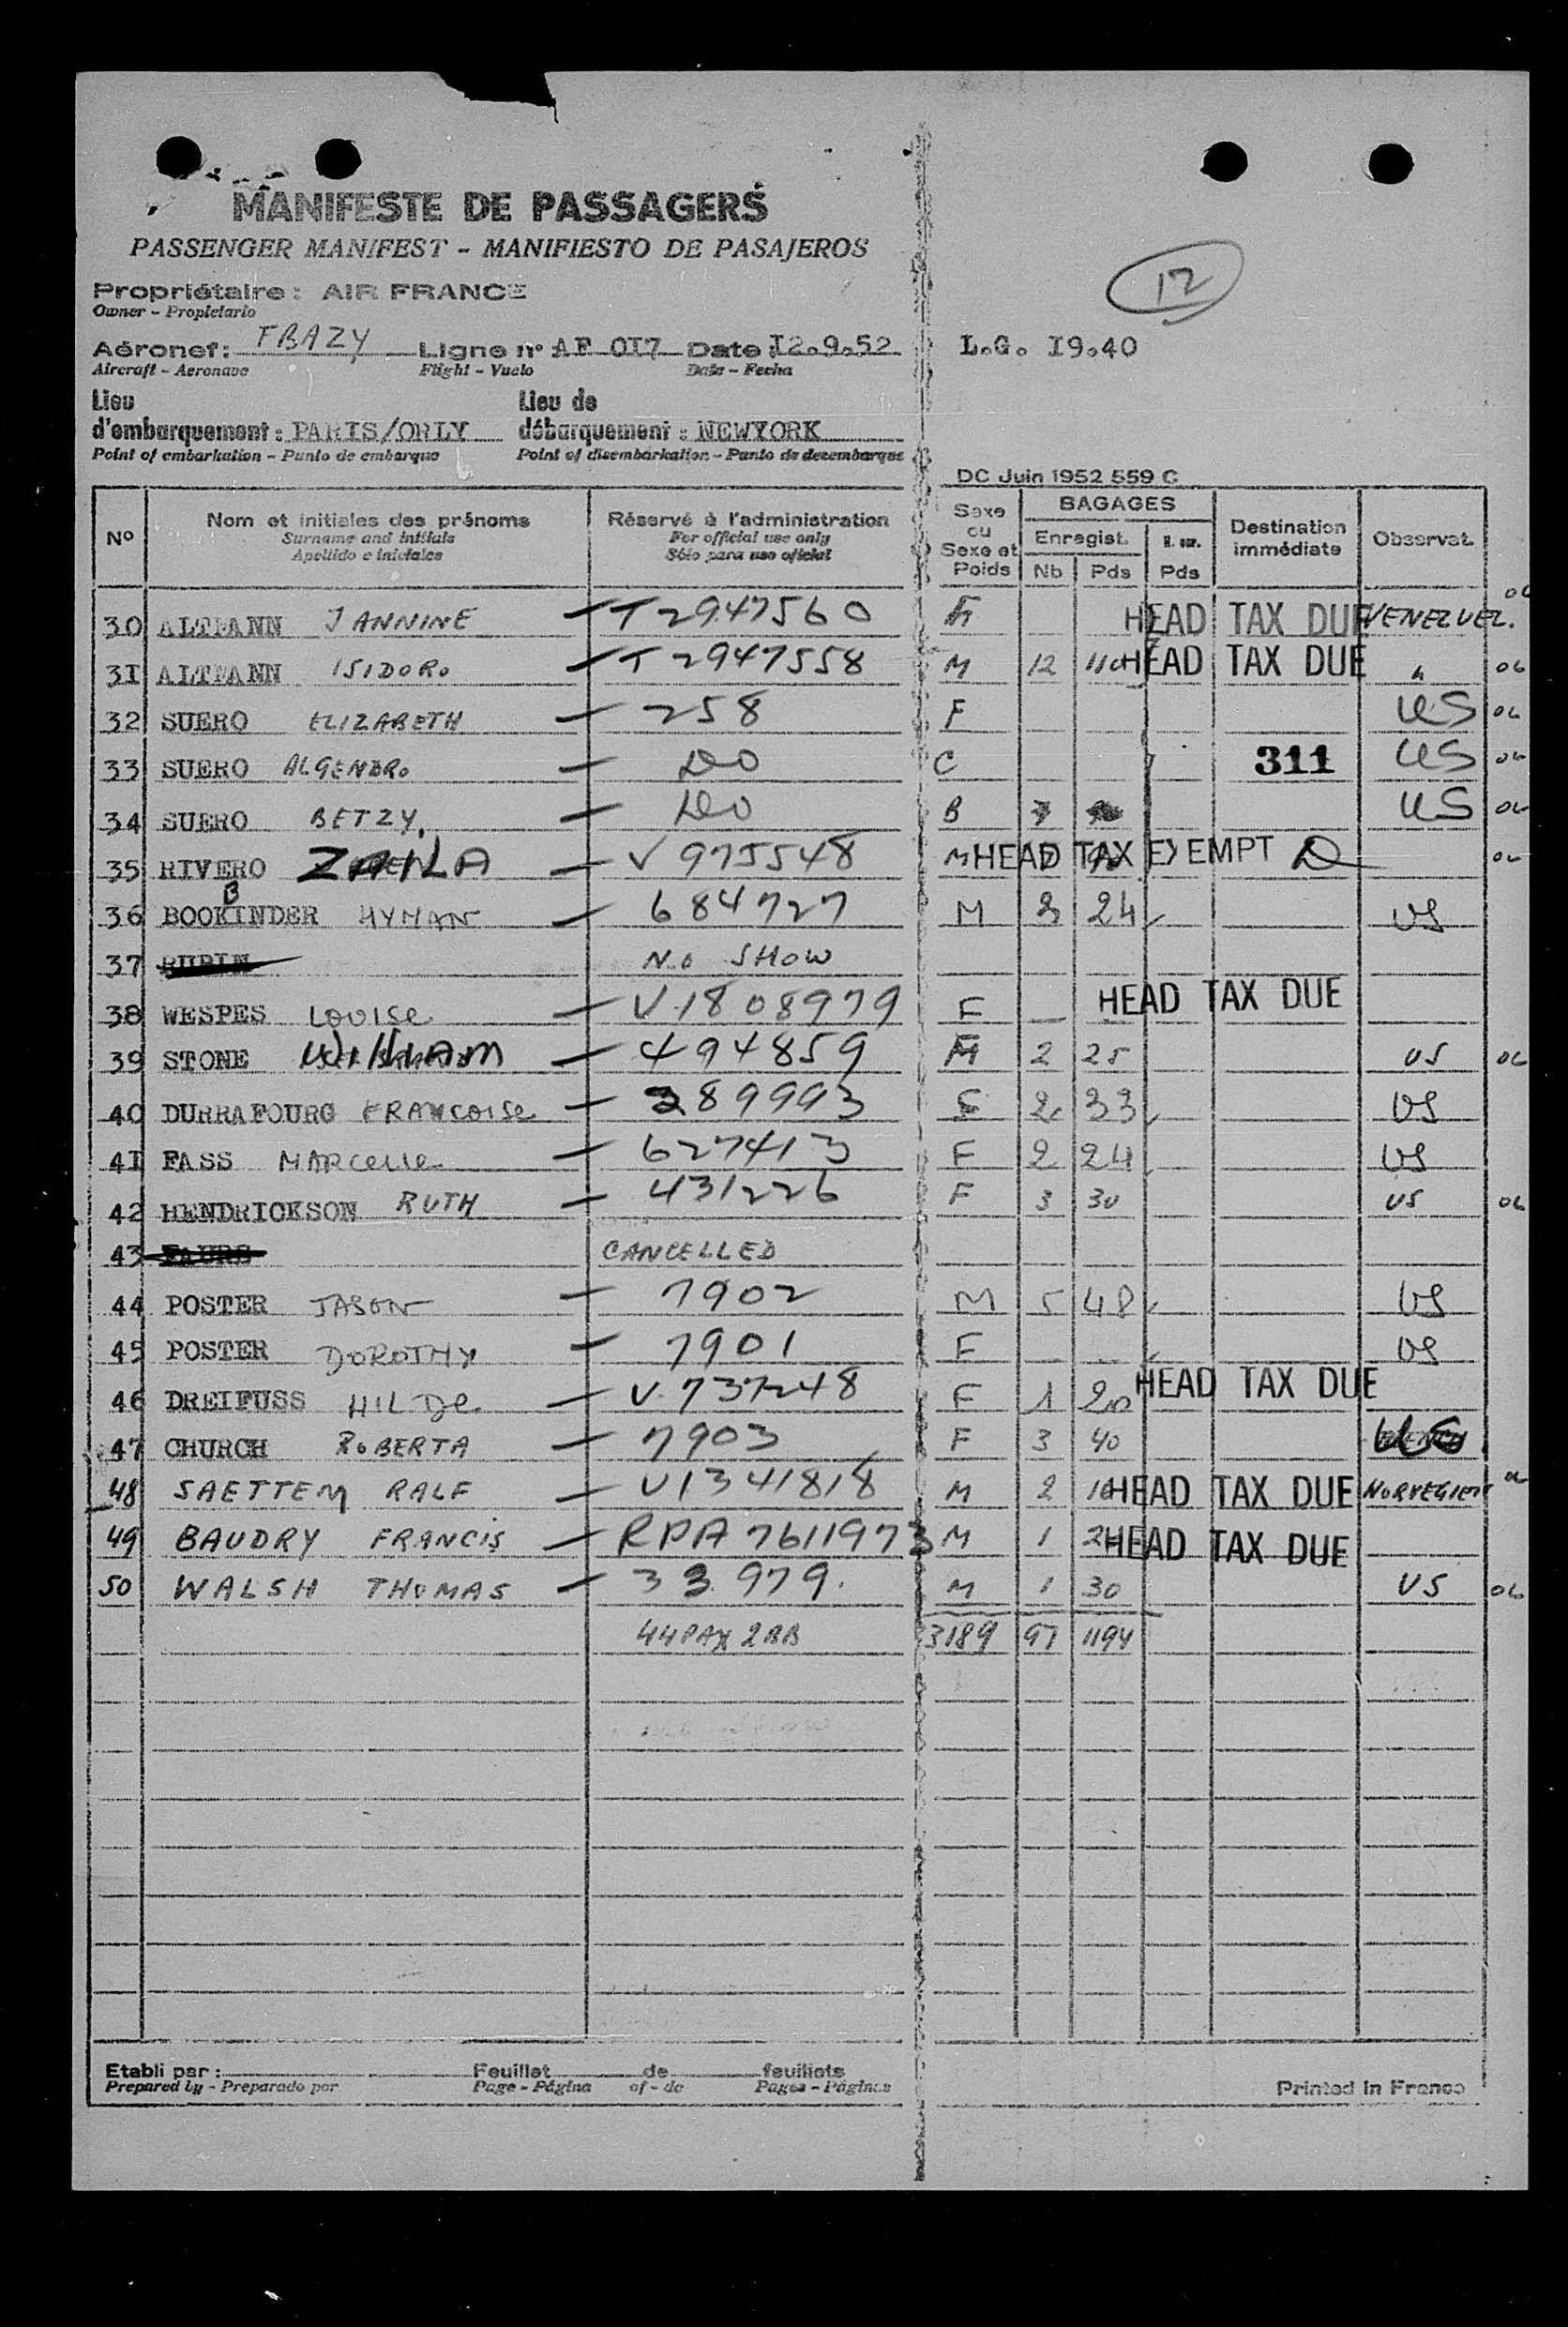 MANIFESTE DE PASSAGERS
PASSENGER MANIFEST - MANIFIESTO DE PASAJEROS
12
Propriétaire : AIR FRANCE
Owner - Propietario
Aéronef : FBAZY Ligne n° AF OI7 Date : I2.9.52 L.G. I9.40
Aircraft - Aeronave Flight - Vuelo Date - Fecha
Lieu d'embarquement : PARIS/ORLY Lieu de débarquement : NEWYORK
Point of embarkation - Punto de embarque Point of disembarkation - Punto de desembarque
DC Juin 1952 559 C
N° Nom et initiales des prénoms Réservé à l'administration Sexe ou Sexe et Poids BAGAGES Destination immédiate Observat.
Surname and initials For official use only Enregist.
Apellido e iniciales Sólo para uso oficial Nb Pds Pds
30 ALTMANN JANNINE - T 2947560 F HEAD TAX DUE VENEZUEL.
3I ALTMANN ISIDORO - T 2947558 M 12 110 HEAD TAX DUE "
32 SUERO ELIZABETH - 258 F US
33 SUERO ALGENDRO - DO C 311 US
34 SUERO BETZY - DO B US
35 RIVERO ZAILA - V 975548 M HEAD TAX EXEMPT D
36 BOOKBINDER HYMAN - 684727 M 3 24 US
37 RUBIN NO SHOW
38 WESPES LOUISE - V 1808979 F HEAD TAX DUE
39 STONE WILLIAM - 494859 M 2 25 US
40 DURRAFOURG FRANCOISE - 389993 F 2 33 US
4I FASS MARCELLE - 627413 F 2 24 US
42 HENDRICKSON RUTH - 431226 F 3 30 US
43 FAURE CANCELLED
44 POSTER JASON - 7902 M 5 48 US
45 POSTER DOROTHY - 7901 F US
46 DREIFUSS HILDE - V 737248 F 1 20 HEAD TAX DUE
47 CHURCH ROBERTA - 7903 F 3 40 US
48 SAETTEM RALF - V1341818 M 2 HEAD TAX DUE NORVEGIEN
49 BAUDRY FRANCIS - RPA 7611973 M 1 HEAD TAX DUE
50 WALSH THOMAS - 33979 M 1 30 US
44 PAX 2BB 3189 97 1194
Etabli par : Feuillet de feuillets
Prepared by - Preparado por Page - Página of - de Pages - Páginas
Printed in France